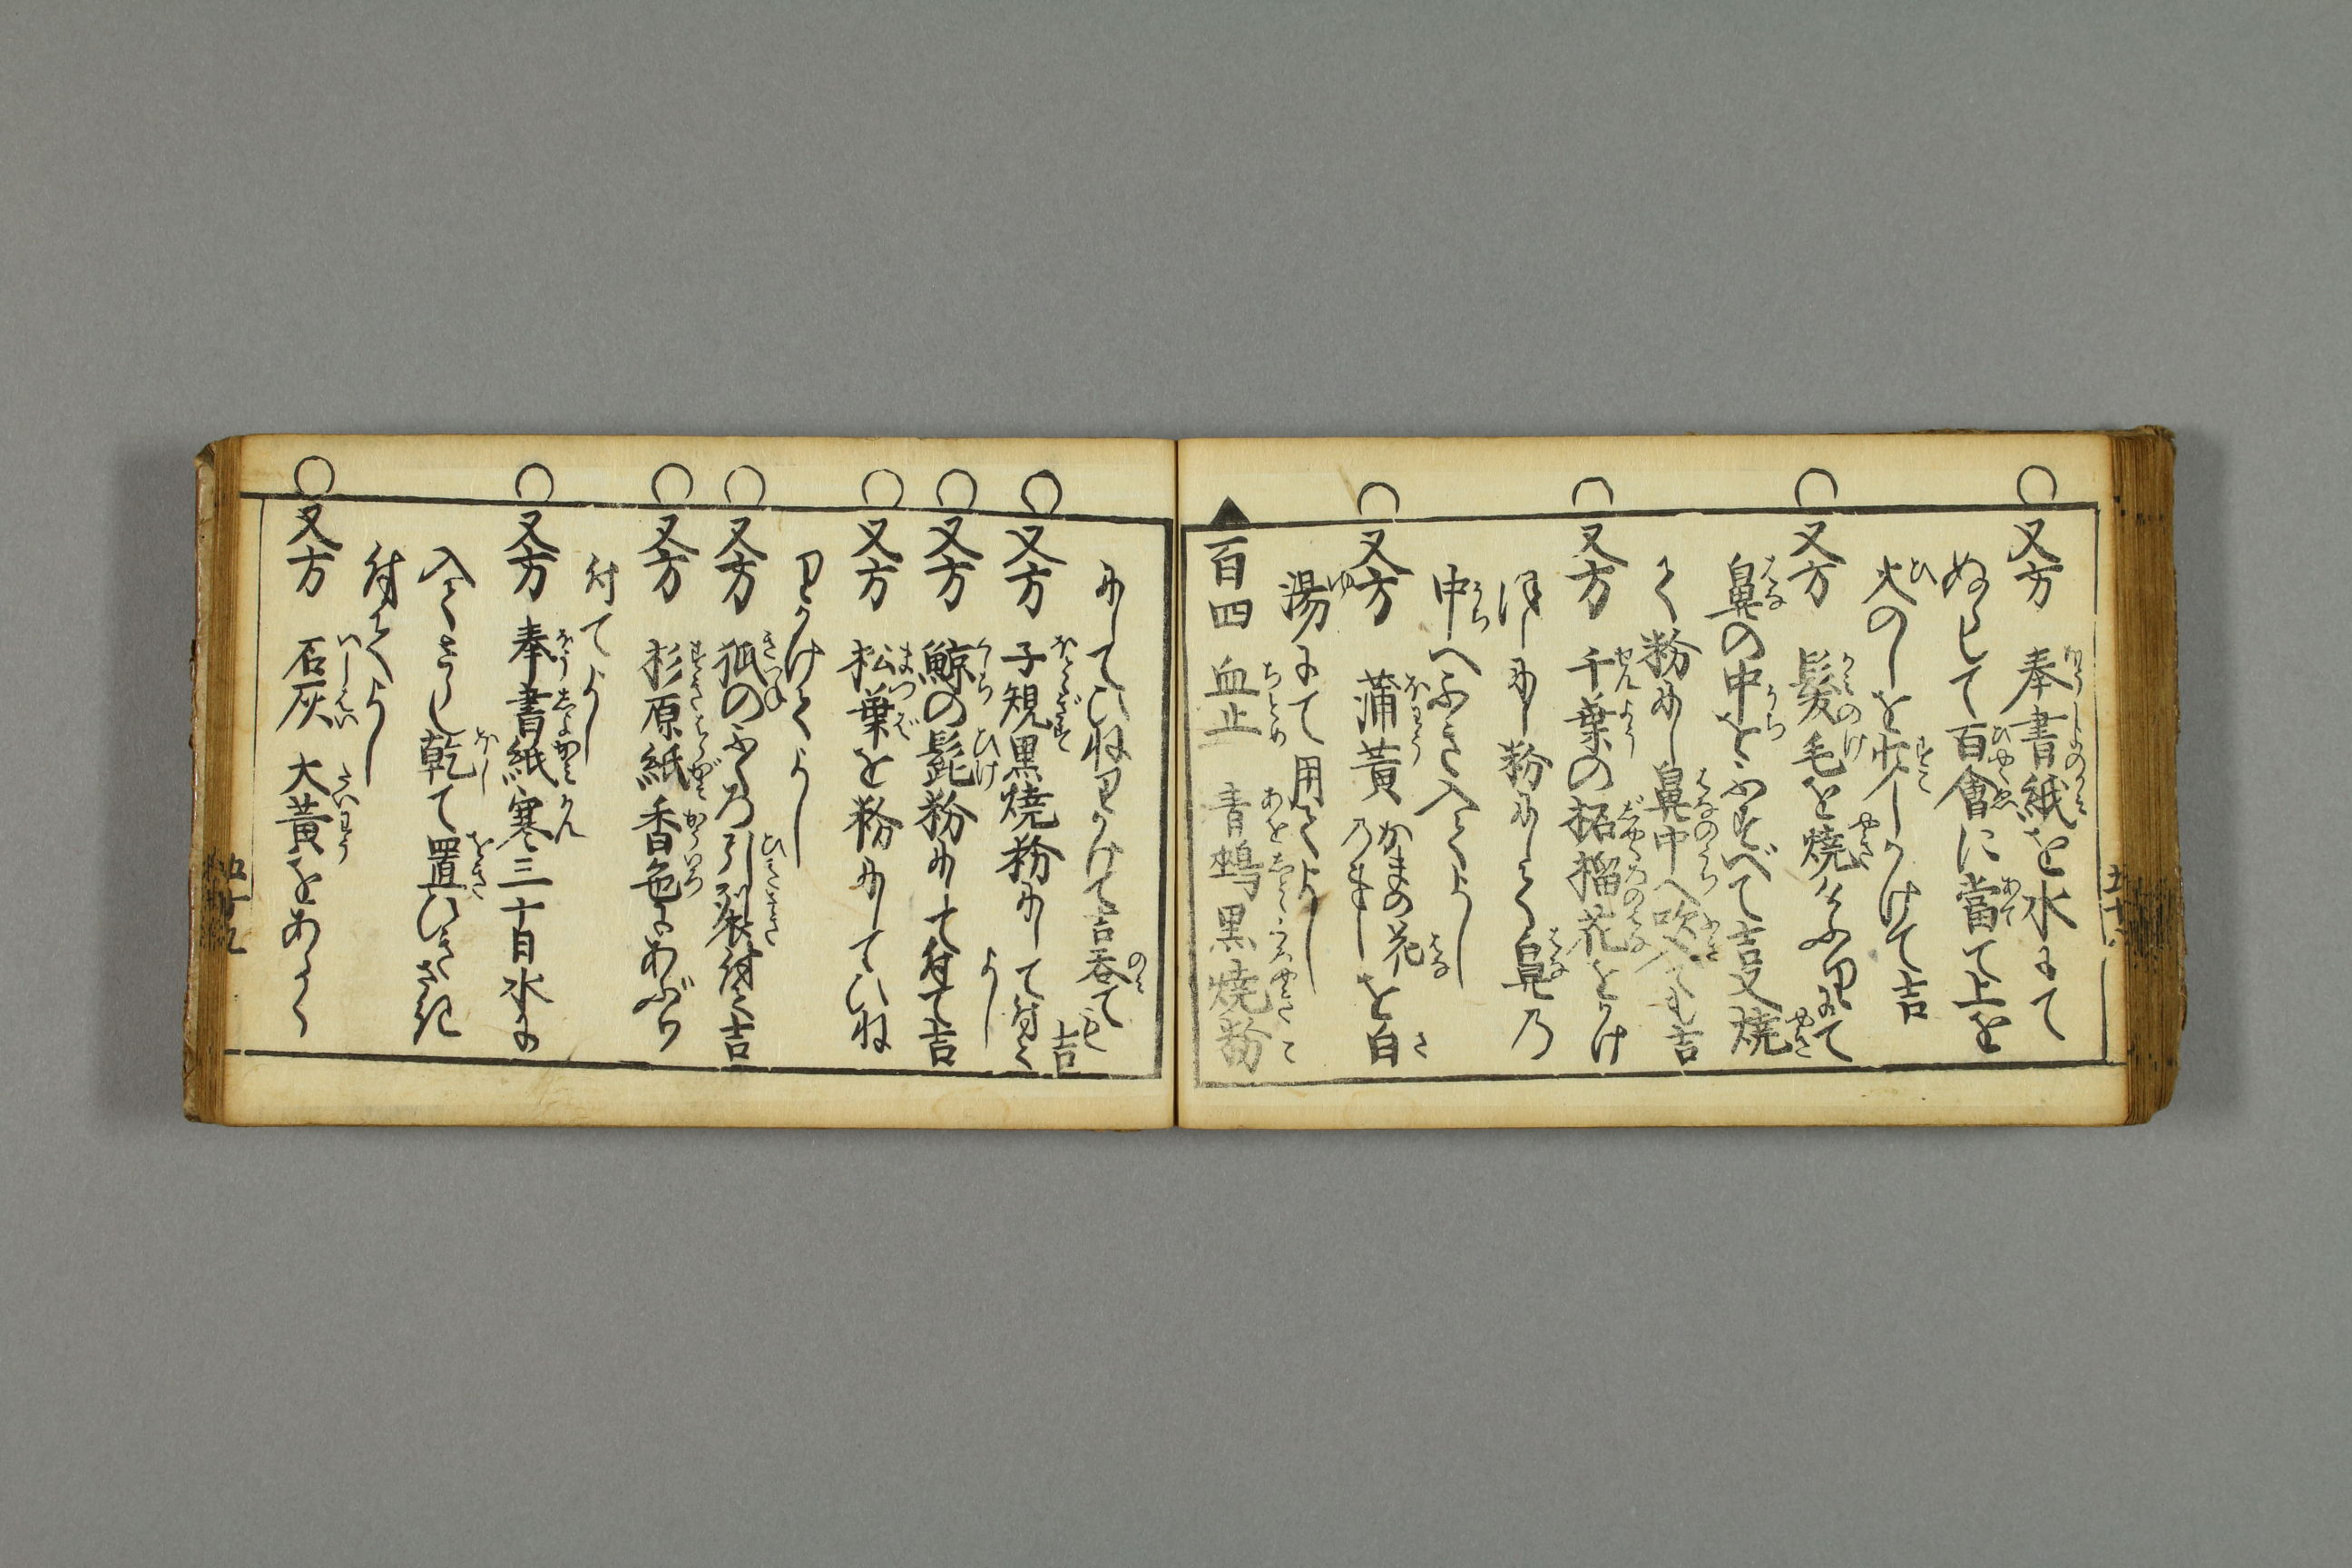 又方 奉書紙を水にて
ぬらして百會に當て上を
火のしを少しかけて吉
又方 髪毛を焼けふりにて
鼻の中をふすべて吉又焼
て粉にし鼻中へ吹入ても吉
又方 千葉の柘榴花をかけ
ほしにし粉にして鼻乃
中へふき入てよし
又方 蒲黄 かまの花乃事しを白
湯にて用てよし
百四 血止 青鷀黒焼粉
にしてひねりかけて吉呑ても吉
又方 子規黒焼粉にして付てよし
又方 鯨の髭粉にして付て吉
又方 松葉を粉にしていね
りかけてよし
又方 狐のふくろ引裂付て吉
又方 杉原紙香色にあぶり
付てよし
又方 奉書紙寒三十日水に
入てさらし乾て置ひきさき
付てよし
又方 石灰 大黄をあらく